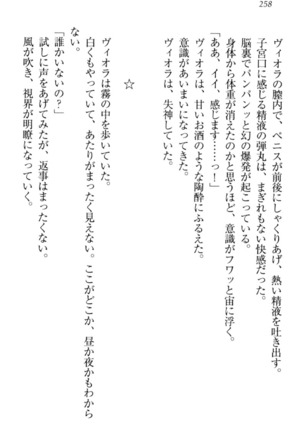 258
ヴィオラの膣内で、ペニスが前後にしゃくりあげ、熱い精液を吐き出す。
子宮口に感じる精液の弾丸は、まぎれもない快感だった。
脳裏でパンパンッと幻の爆発が起こっている。
身体から体重が消えたのかと思うほど、意識がフワッと宙に浮く。
「ああ、イイ、感じます……っ!」
ヴィオラは、甘いお酒のような陶酔にふるえた。
意識があいまいになってきた。
ヴィオラは、失神していた。
☆
ヴィオラは霧の中を歩いていた。
白くもやっていて、あたりがまったく見えない。ここがどこか、昼か夜かもわから
ない。
「誰かいないの?」
試しに声をあげてみたが、返事はまったくない。
風が吹き、視界が明瞭になっていく。